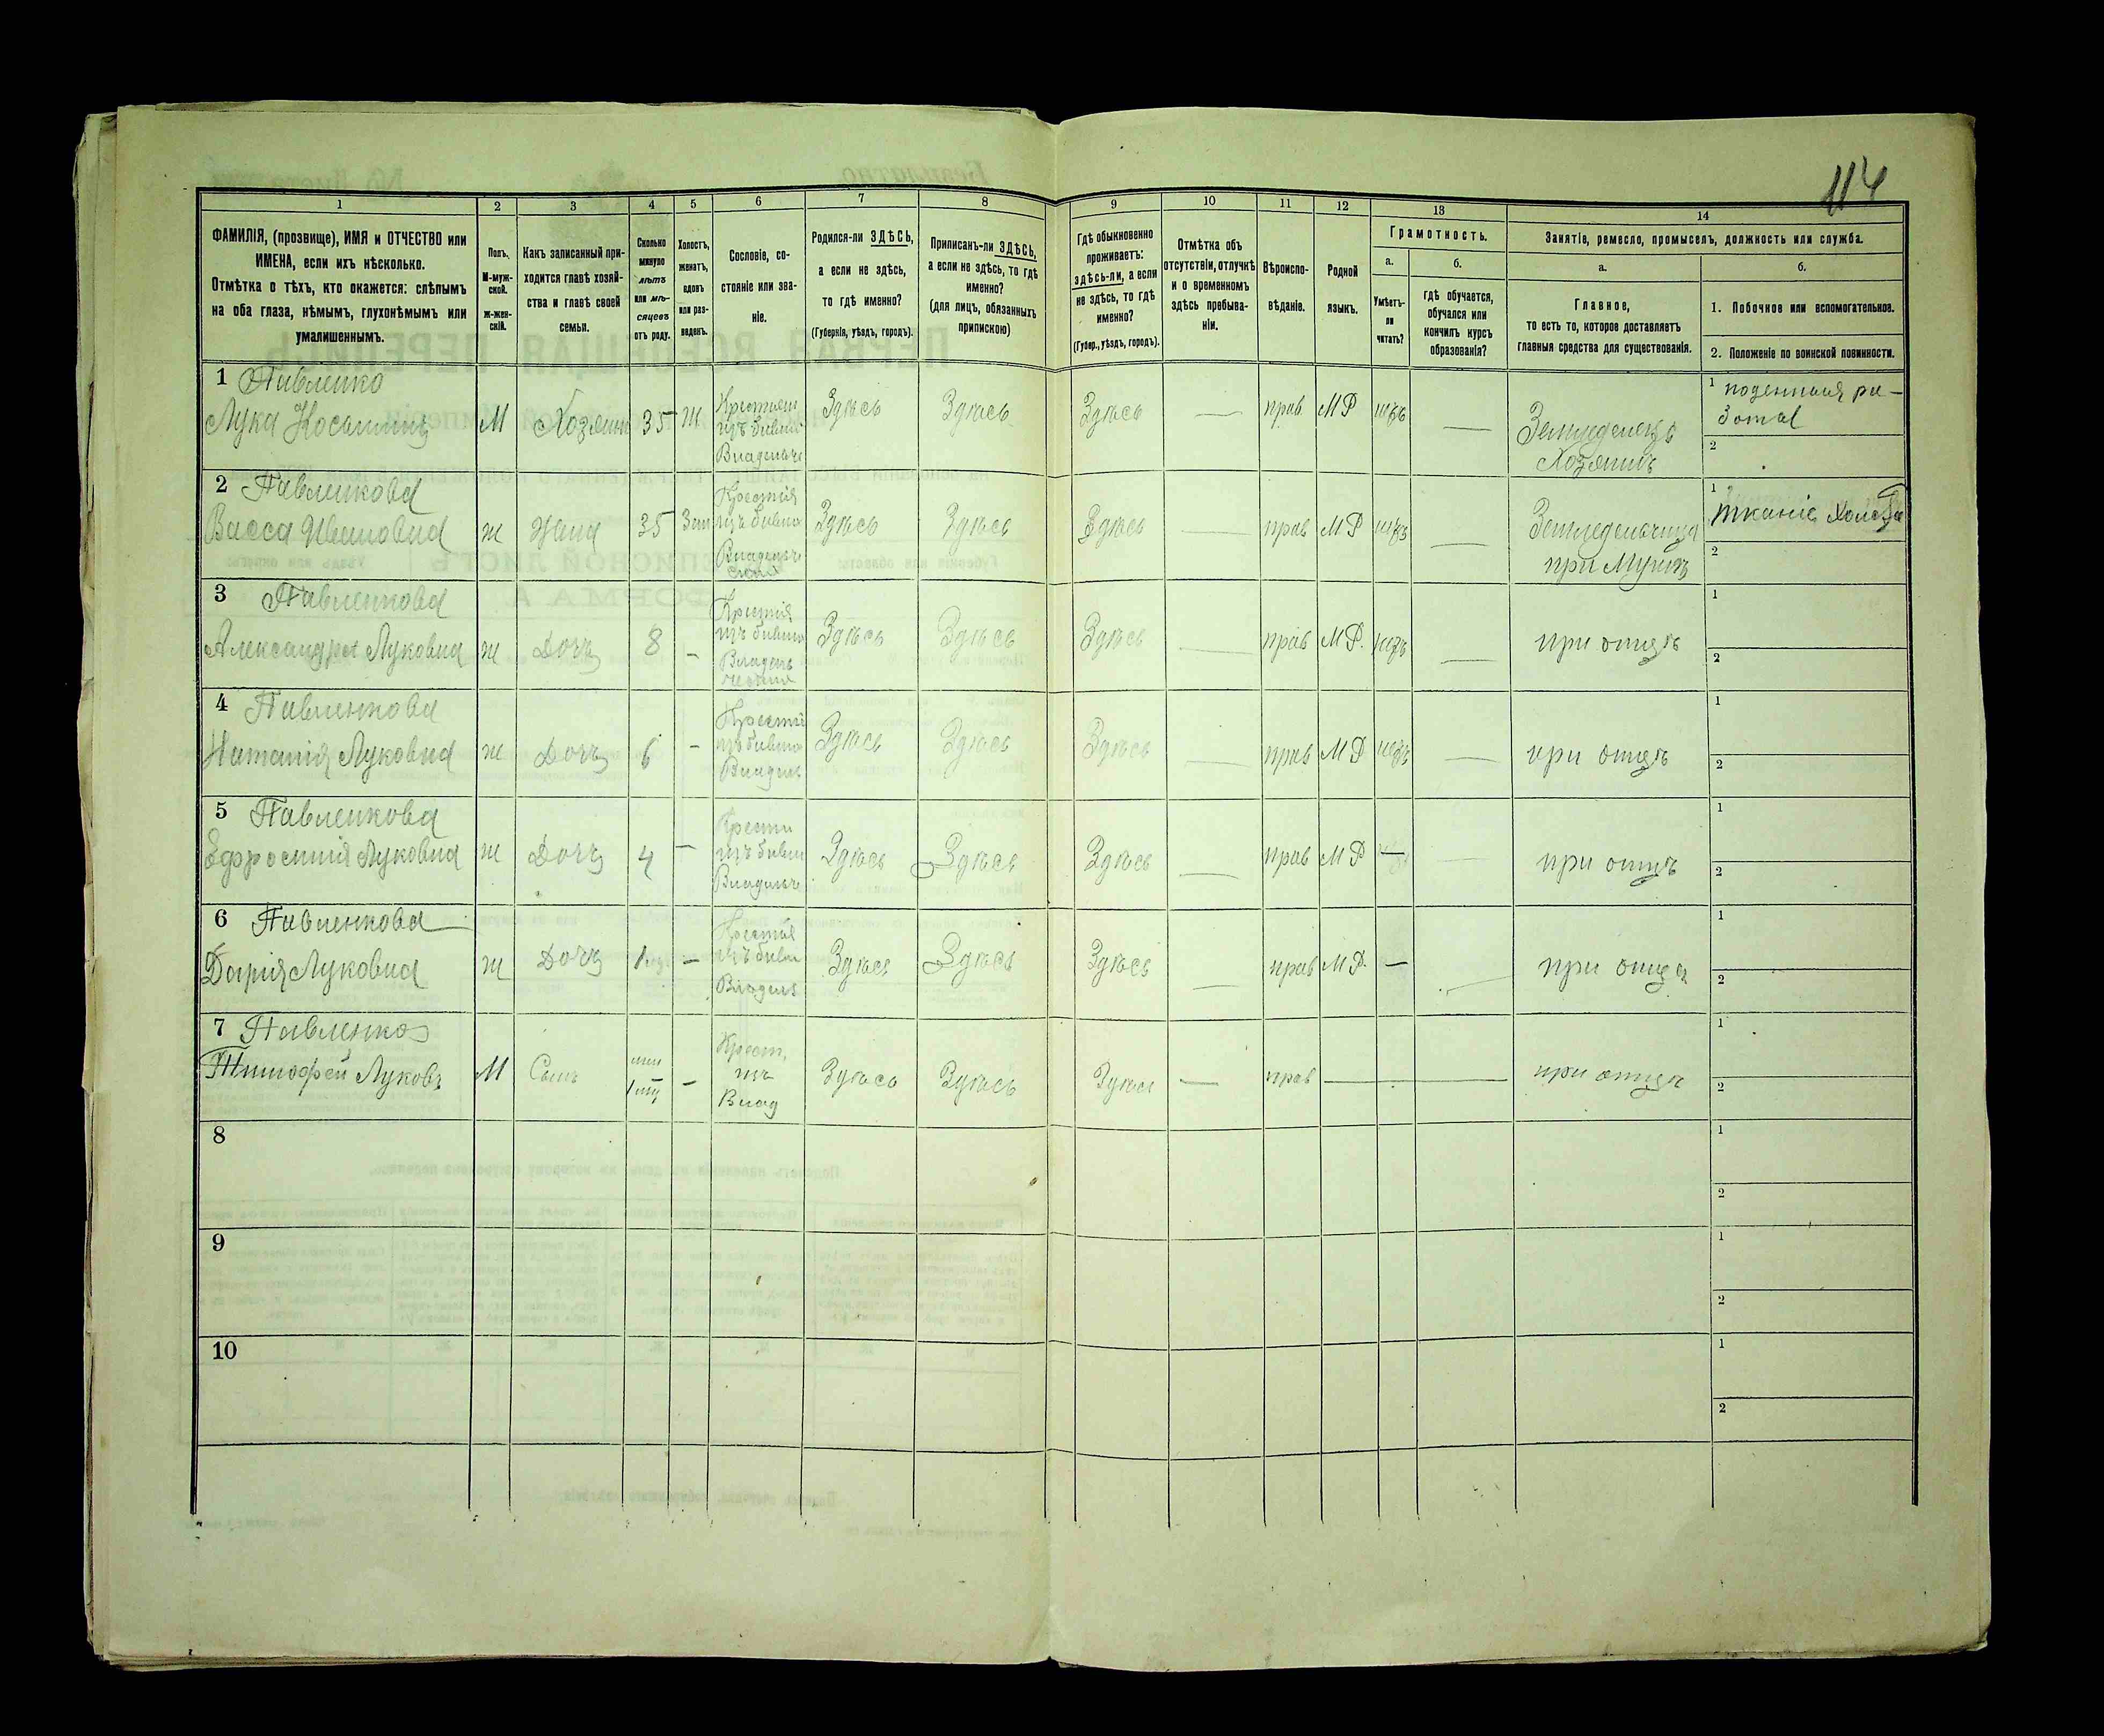 114
1
2
3
4
5
6
7
8
9
10
11
12
13
14
ФАМИЛІЯ, (прозвище), ИМЯ и ОТЧЕСТВО или
ИМЕНА, если ихъ нѣсколько.
Отмѣтка о тѣхъ, кто окажется: слѣпымъ
на оба глаза, нѣмымъ, глухонѣмымъ или
умалишеннымъ.
Полъ.
М-муж-
ской.
Ж-жен-
скій.
Какъ записанный при-
ходится главѣ хозяй-
ства и главѣ своей
семьи.
Сколько
минуло
лѣтъ
или мѣ-
сяцевъ
отъ роду.
Холостъ,
женатъ,
вдовъ
или раз-
веденъ.
Сословіе, со-
стояніе или зва-
ніе.
Родился-ли ЗДѢСЬ,
а если не здѣсь,
то гдѣ именно?
(Губернія, уѣздъ, городъ).
Приписанъ-ли ЗДѢСЬ,
а если не здѣсь, то гдѣ
именно?
(для лицъ, обязанныхъ
припискою)
Гдѣ обыкновенно
проживаетъ:
здѣсь-ли, а если
не здѣсь, то гдѣ
именно?
(Губер., уѣздъ, городъ).
Отмѣтка объ
отсутствіи, отлучкѣ
и о временномъ
здѣсь пребыва-
ніи.
Вѣроиспо-
вѣданіе.
Родной
языкъ.
Грамотность.
а.
Умѣетъ-
ли
читать?
б.
гдѣ обучается,
обучался или
кончилъ курсъ
образованія?
Занятіе, ремесло, промыселъ, должность или служба.
а.
Главное,
то есть то, которое доставляетъ
главныя средства для существованія.
б.
1. Побочное или вспомогательное.
2. Положеніе по воинской повинности.
1 Павленко
Лука
М
Хозяинъ
35
Ж
Здѣсь
Здѣсь
Здѣсь
—
прав
МР
нѣтъ
—
Земледелецъ
Хозяинъ
1 поденная ра-
бота
2
2 Павленкова
Васса Ивановна
ж
Жена
35
Зам
Здѣсь
Здѣсь
Здѣсь
—
прав
МР
нѣтъ
—
Земледельчица
при Мужѣ
1
тканіе холста
2
3 Павленкова
Александра Лукова
ж
Дочь
8
—
Здѣсь
Здѣсь
Здѣсь
—
прав
МР.
нѣтъ
—
при отцѣ
1
2
4 Павленкова
Наталія Лукова
ж
Дочь
6
—
Здѣсь
Здѣсь
Здѣсь
—
прав
МР
нѣтъ
—
при отцѣ
1
2
5 Павленкова
Ефросинія Лукова
ж
Дочь
4
—
Здѣсь
Здѣсь
Здѣсь
—
прав
МР
—
при отцѣ
1
2
6 Павленкова
Дарія Лукова
ж
Дочь
1
—
Здѣсь
Здѣсь
Здѣсь
—
прав
МР.
—
при отцѣ
1
2
7 Павленко
Тимофей Луковъ
М
Сынъ
—
Крест.
изъ
Влад
Здѣсь
Здѣсь
Здѣсь
—
прав
—
при отцѣ
1
2
8
1
2
9
1
2
10
1
2